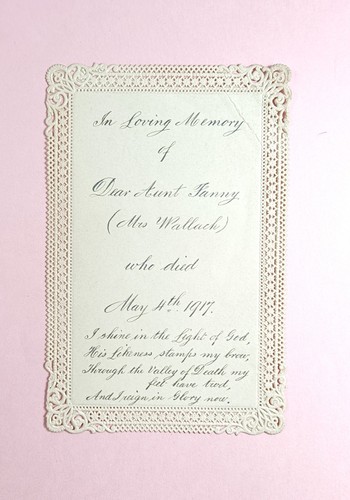 In Loving Memory
of
Dear Aunt Fanny
(Mrs Wallach)
who died
May 4th. 1917.
I shine in the Light of God,
His likeness stamps my brow,
Through the Valley of Death my
feet have trod,
And I reign in Glory now.